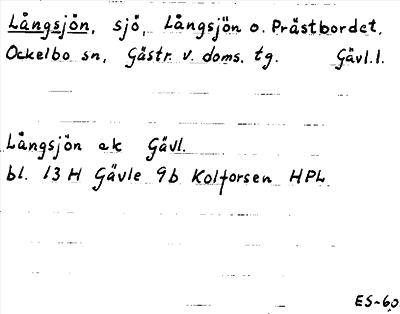 Långsjön, sjö, Långsjön o. Prästbordet,
Ockelbo sn, Gästr. v. doms. tg. Gävl.l.
Långsjön ek Gävl.
bl. 13 H Gävle 9b Kolforsen HPL
ES-60